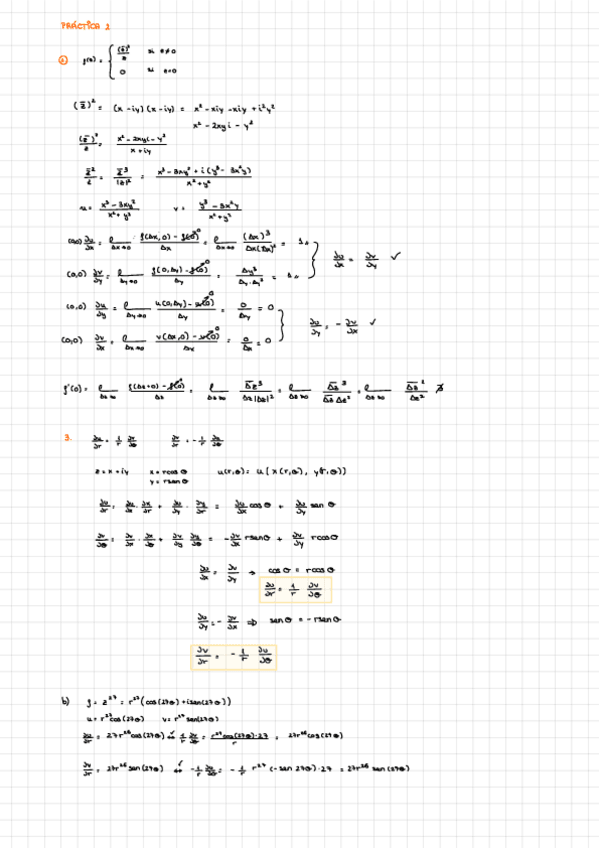 PRÁCTICA 2
② f(z) = { (z̄)²/z si z≠0
0 si z=0
(z̄)² = (x-iy)(x-iy) = x² - xiy - xiy + i²y²
x² - 2xyi - y²
(z̄)²/z = x² - 2xyi - y² / x+iy
z̄²/z = z̄³/|z|² = x³ - 3xy² + i(y³ - 3x²y) / x²+y²
u = x³ - 3xy² / x²+y² v = y³ - 3x²y / x²+y²
(0,0) ∂u/∂x = l Δx→0 f(Δx,0) - f(0)⁰ / Δx = l Δx→0 (Δx)³ / Δx(Δx)² = 1
(0,0) ∂v/∂y = l Δy→0 f(0,Δy) - f(0)⁰ / Δy = Δy³ / Δy·Δy² = 1 } ∂u/∂x = ∂v/∂y ✓
(0,0) ∂u/∂y = l Δy→0 u(0,Δy) - u(0)⁰ / Δy = 0/Δy = 0
(0,0) ∂v/∂x = l Δx→0 v(Δx,0) - v(0)⁰ / Δx = 0/Δx = 0 } ∂u/∂y = -∂v/∂x ✓
f'(0) = l Δz→0 f(Δz+0) - f(0)⁰ / Δz = l Δz→0 Δz̄³ / Δz|Δz|² = l Δz→0 Δz̄³ / Δz̄ Δz² = l Δz→0 Δz̄² / Δz² ∄
3. ∂u/∂r = 1/r ∂v/∂θ ∂v/∂r = -1/r ∂u/∂θ
z = x+iy x = rcosθ u(r,θ) = u(x(r,θ), y(r,θ))
y = rsenθ
∂u/∂r = ∂u/∂x · ∂x/∂r + ∂u/∂y · ∂y/∂r = ∂u/∂x cosθ + ∂u/∂y senθ
∂v/∂θ = ∂v/∂x · ∂x/∂θ + ∂v/∂y ∂y/∂θ = -∂v/∂x rsenθ + ∂v/∂y rcosθ
∂u/∂x = ∂v/∂y → cosθ = rcosθ
∂u/∂r = 1/r ∂v/∂θ
∂u/∂y = -∂v/∂x ⇒ senθ = -rsenθ
∂v/∂r = -1/r ∂u/∂θ
b) f = z²⁷ = r²⁷(cos(27θ) + isen(27θ))
u = r²⁷cos(27θ) v = r²⁷sen(27θ)
∂u/∂r = 27r²⁶cos(27θ) ⇔ 1/r ∂v/∂θ = r²⁷cos(27θ)·27 / r = 27r²⁶cos(27θ)
∂v/∂r = 27r²⁶sen(27θ) ⇔ -1/r ∂u/∂θ = -1/r r²⁷(-sen 27θ)·27 = 27r²⁶sen(27θ)